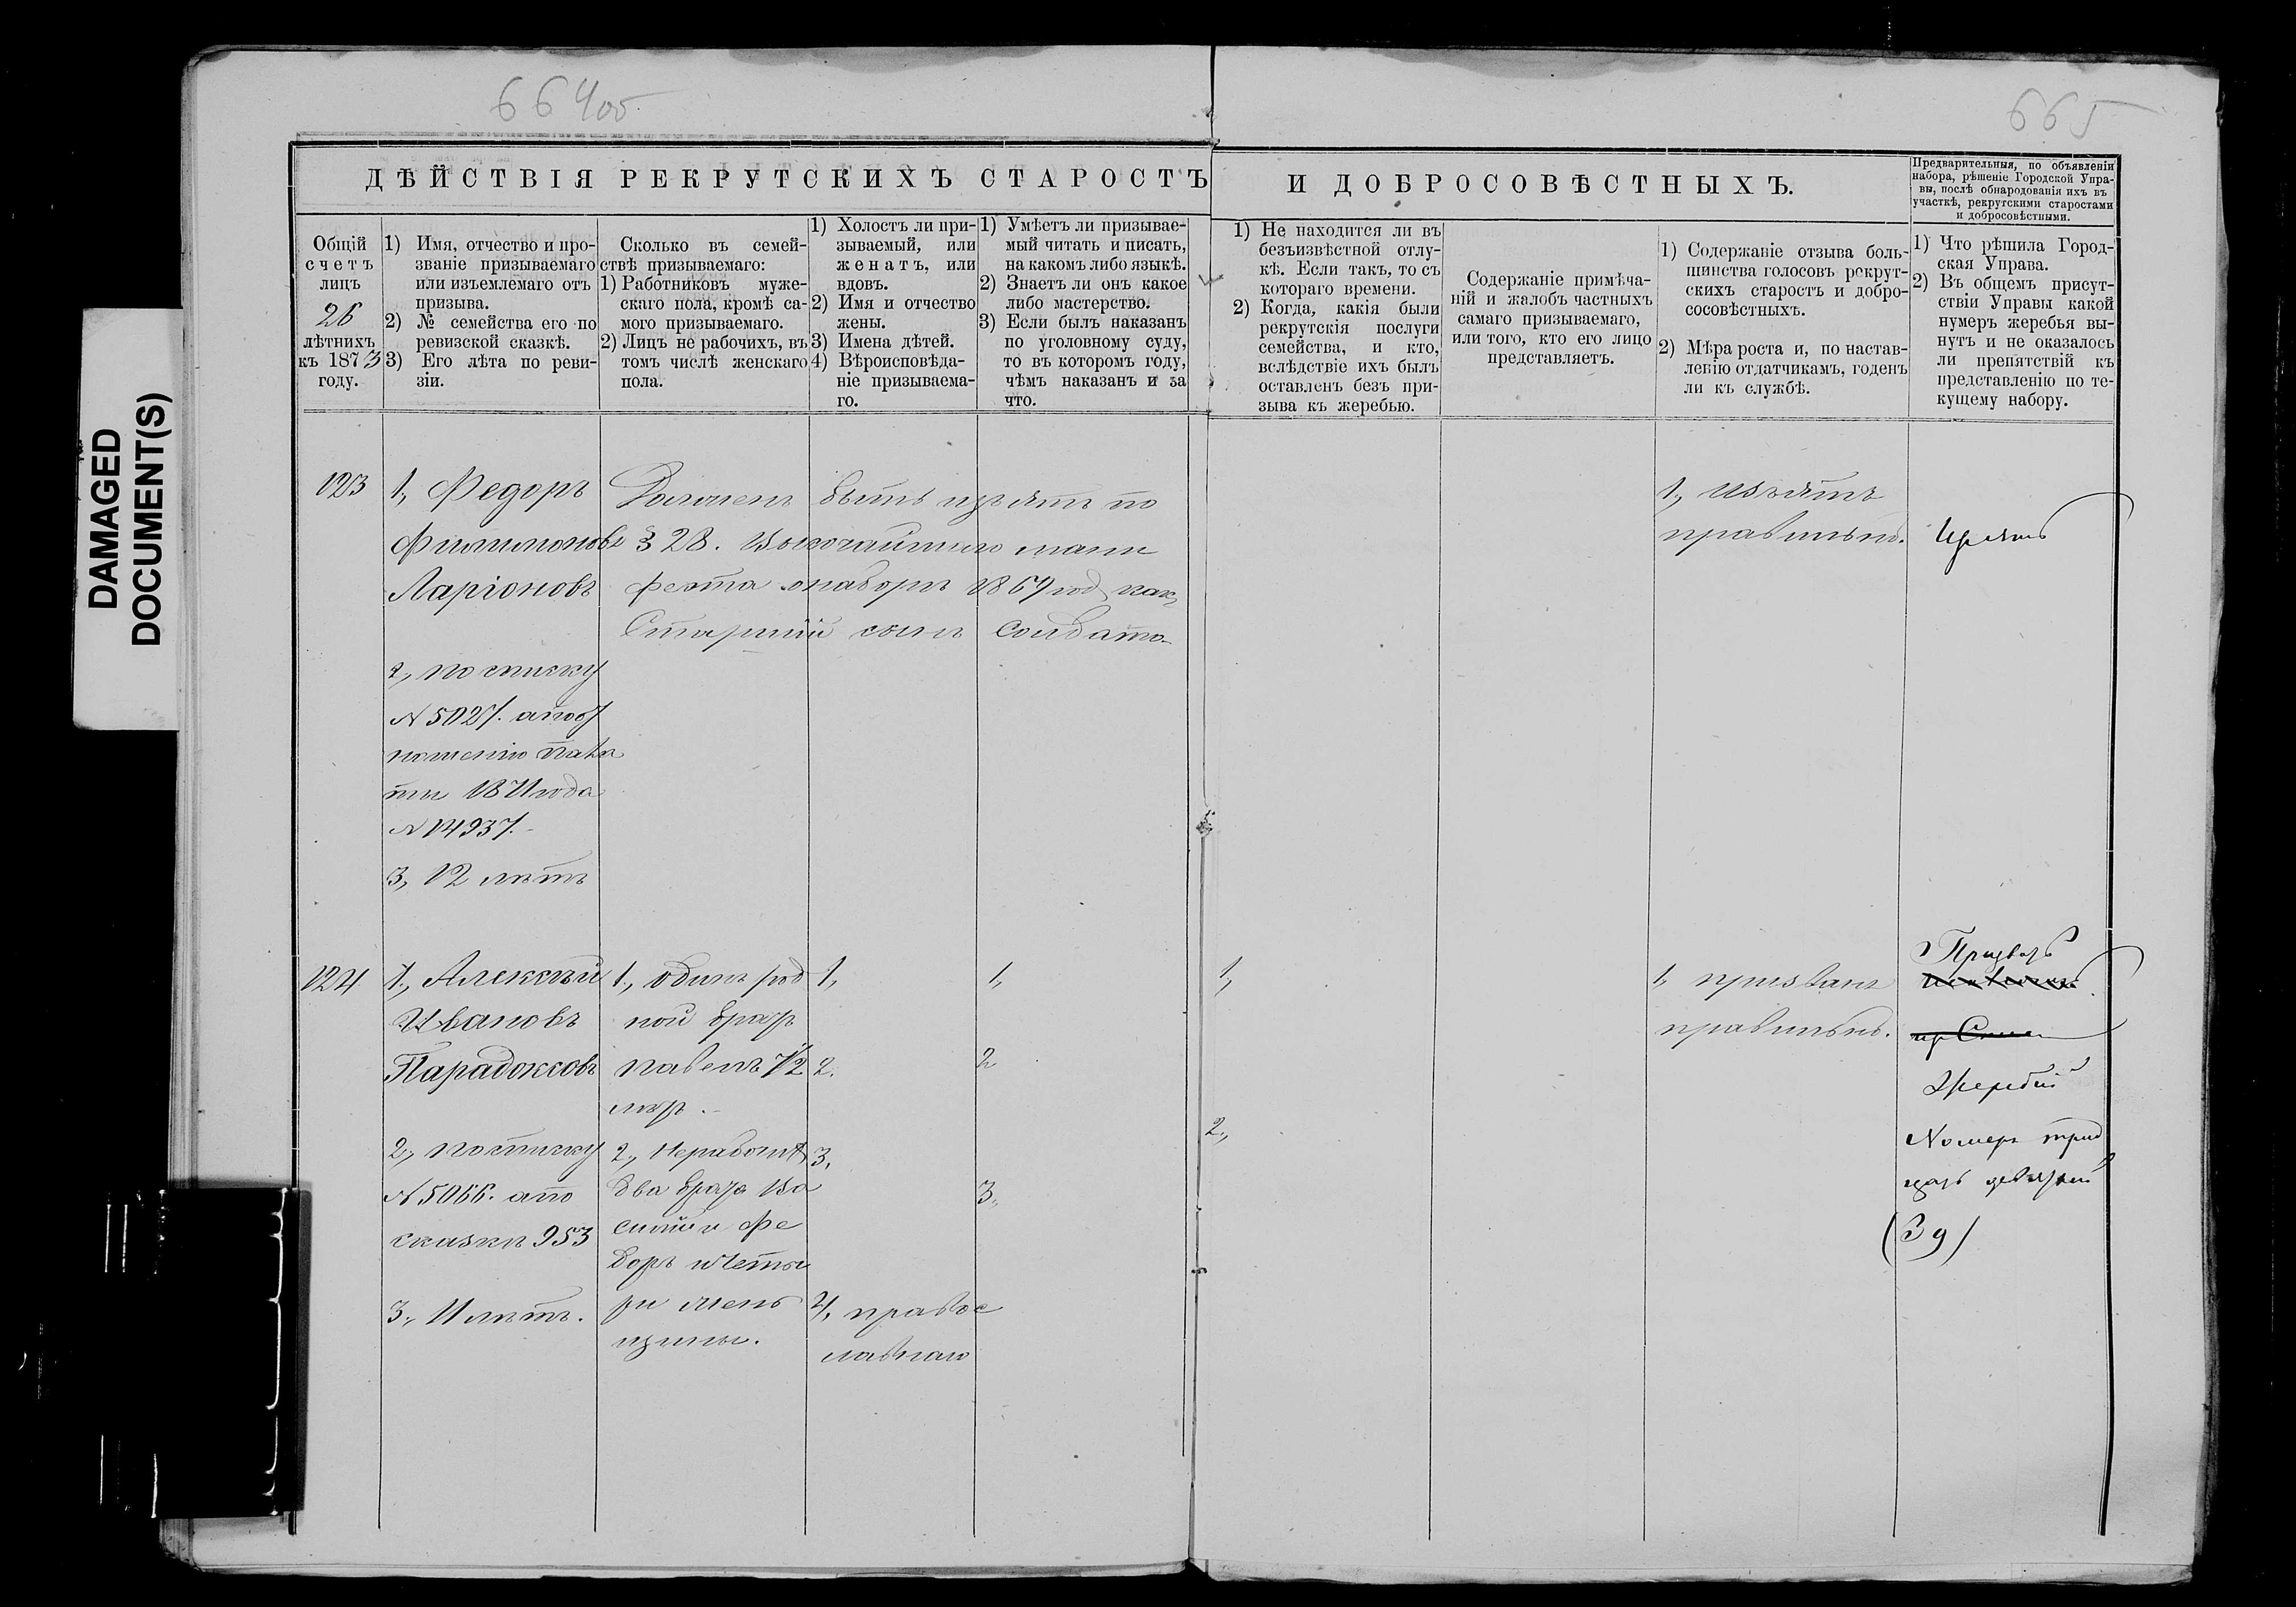 664об
665
DAMAGED
DOCUMENT(S)
ДѢЙСТВІЯ РЕКРУТСКИХЪ СТАРОСТЪ
И ДОБРОСОВѢСТНЫХЪ.
Предварительныя, по объявленіи
набора, рѣшеніе Городской Упра-
вы, послѣ обнародованія ихъ въ
участкѣ, рекрутскими старостами
и добросовѣстными.
Общій
счетъ
лицъ
26
лѣтнихъ
къ 1873
году.
1) Имя, отчество и про-
званіе призываемаго
или изъемлемаго отъ
призыва.
2) № семейства его по
ревизской сказкѣ.
3) Его лѣта по реви-
зіи.
Сколько въ семей-
ствѣ призываемаго:
1) Работниковъ муже-
скаго пола, кромѣ са-
мого призываемаго.
2) Лицъ не рабочихъ, въ
томъ числѣ женскаго
пола.
1) Холостъ ли при-
зываемый, или
женатъ, или
вдовъ.
2) Имя и отчество
жены.
3) Имена дѣтей.
4) Вѣроисповѣда-
ніе призываема-
го.
1) Умѣетъ ли призывае-
мый читать и писать,
на какомъ либо языкѣ.
2) Знаетъ ли онъ какое
либо мастерство.
3) Если былъ наказанъ
по уголовному суду,
то въ которомъ году,
чѣмъ наказанъ и за
что.
1) Не находится ли въ
безъизвѣстной отлу-
кѣ. Если такъ, то съ
котораго времени.
2) Когда, какія были
рекрутскія послуги
семейства, и кто,
вслѣдствіе ихъ былъ
оставленъ безъ при-
зыва къ жеребью.
Содержаніе примѣча-
ній и жалобъ частныхъ
самаго призываемаго,
или того, кто его лицо
представляетъ.
1) Содержаніе отзыва боль-
шинства голосовъ рекрут-
скихъ старостъ и добро-
сосовѣстныхъ.
2) Мѣра роста и, по настав-
ленію отдатчикамъ, годенъ
ли къ службѣ.
1) Что рѣшила Город-
ская Управа.
2) Въ общемъ присут-
ствіи Управы какой
нумеръ жеребья вы-
нутъ и не оказалось
ли препятствій къ
представленію по те-
кущему набору.
123
1., Федоръ
Филимоновъ
Ларіоновъ
2, по списку
№ 5027. а по от
ношенію пала
ты 1871 года
№ 14937.
3, 12 лѣтъ
Долженъ быть изъятъ по
§ 28. Высочайшаго мани
феста о наборѣ 1869 год, какъ
Старшій сынъ Солдата
1., изъятъ
правильно.
Изъять
124
1., Алексѣй
Ивановъ
Парадоксовъ
2., по списку
№ 5066. а по
сказкѣ 953
3., 11 лѣтъ.
1., одинъ род
ной братъ
Павелъ 7/2
лѣтъ.
2., Неработн.
два брата Ва
силій и Фе
доръ и четы
ри жен
щины.
1,
2.
3,
4, правос
лавнаго
1,
2
3.
1,
2.,
1, призванъ
правильно.
Призвать
Жеребій
Номеръ трид
цать девятый
(39)